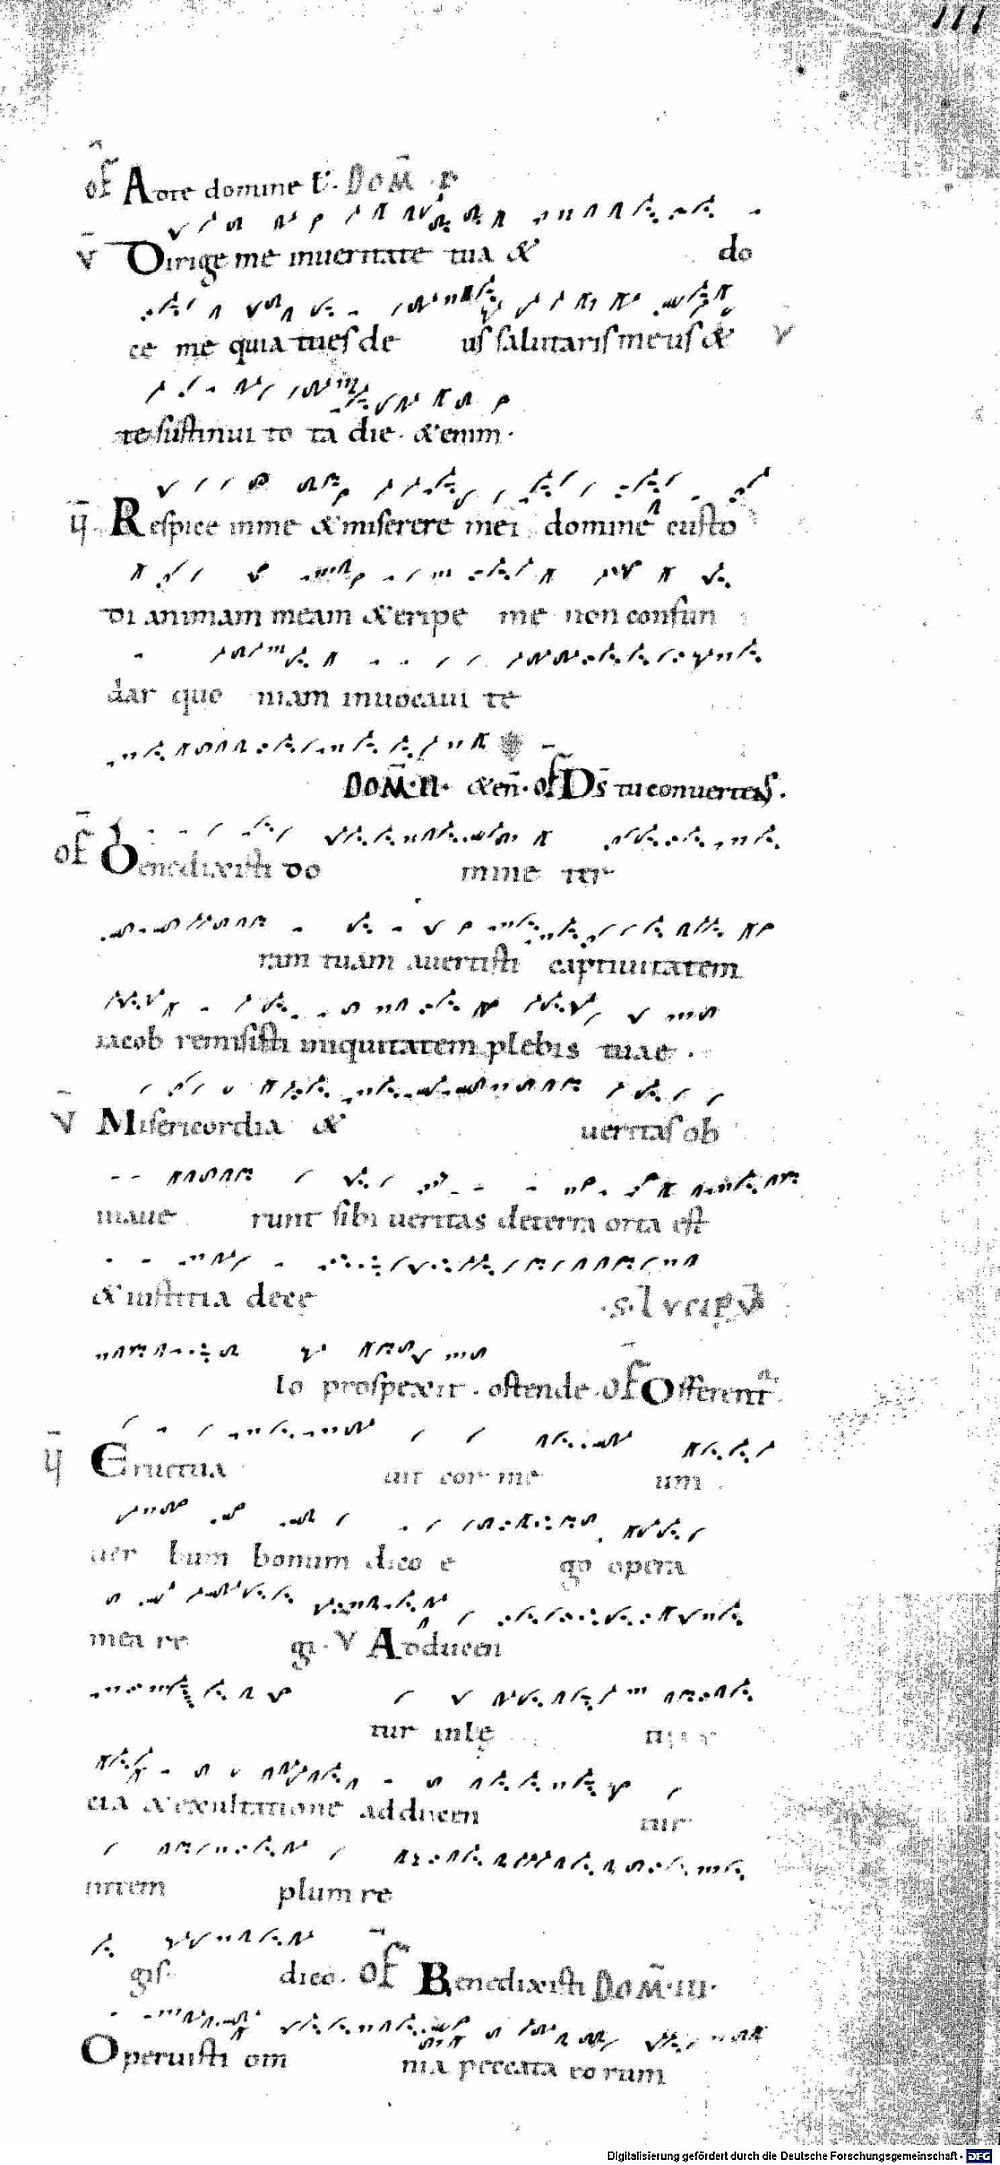 111
of A dte domine l. DOM I
v Dirige me inueritate tua & do
ce me quia tu es de us salutaris meus & v
te sustinui to ta die. &enim.
Respice inme & miserere mei domine custo
di animam meam & eripe me non confun
dar quo niam inuocaui te
DOM II. &en. of Ds tu conuertens.
of Benedixisti do mine ter
ram tuam auertisti captiuitatem
iacob remisisti iniquitatem plebis tuae.
v Misericordia & ueritas ob
uiaue runt sibi ueritas deterra orta est
& iustitia dece
lo prospexit. ostende. of Offerent
Eructua uit cor me um
uer bum bonum dico e go opera
mea re gi. v Adducen
tur in
cia & exultatione adducen tur
intem plum re
gis. dico. of Benedixisti DOM III.
Operuisti om nia peccata eo rum
Digitalisierung gefördert durch die Deutsche Forschungsgemeinschaft - DFG